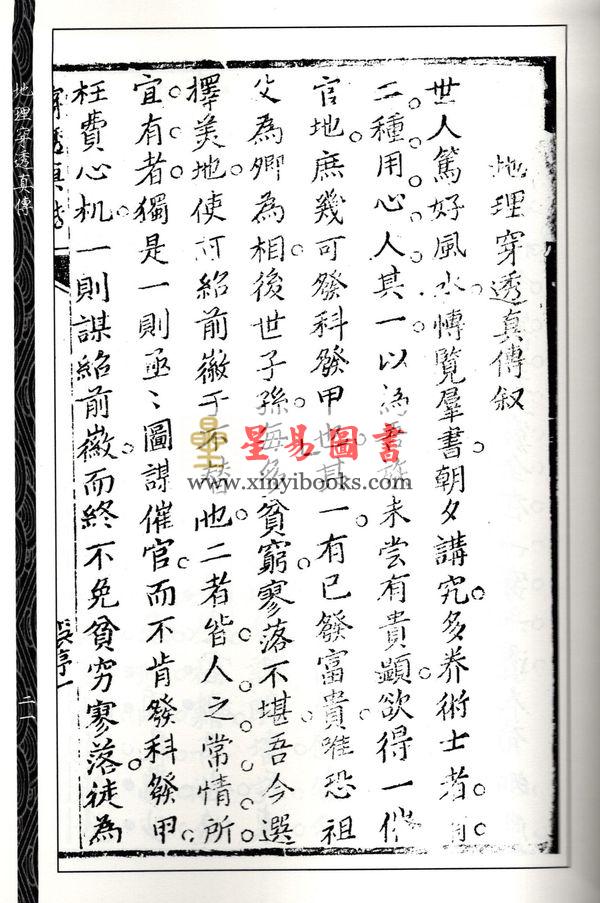 地理穿透真傳叙
世人篤好風水愽覧羣書朝夕講究多养術士者有
二種用心人其一以為吾族未尝有貴顯欲得一催
官地庶幾可發科發甲也其一有已發富貴唯恐祖
父為卿為相後世子孫每多貧窮寥落不堪吾今選
擇美地使可紹前徽于不替也二者皆人之常情所
宜有者獨是一則亟〻圖謀催官而不肯發科發甲
枉費心机一則謀紹前徽而終不免貧穷寥落徒為
地理穿透真傳
二一
星易圖書
www.xinyibooks.com